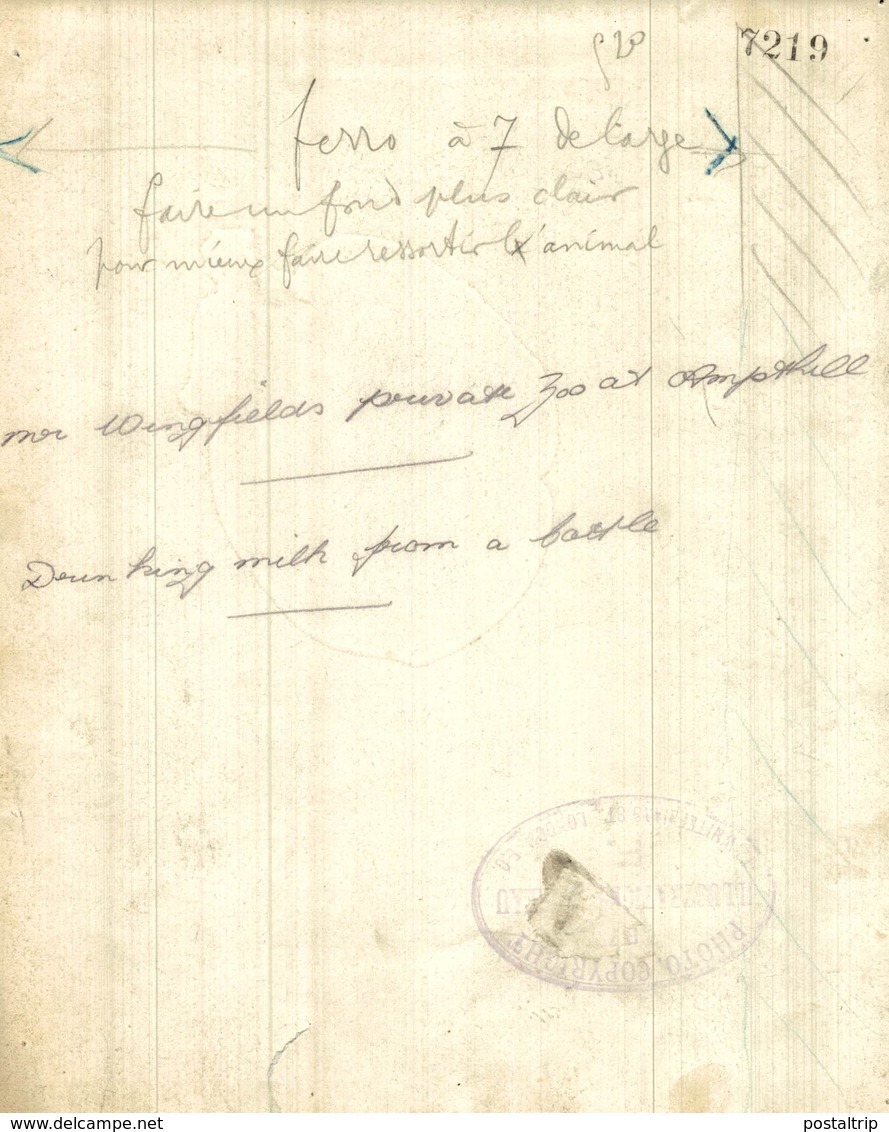 7219
ferro à 7 de large
faire un fond plus clair
pour mieux faire ressortir l'animal
mr Wingfields private Zoo at Ampthill
Drinking milk from a bottle
PHOTO COPYRIGHT
ILLUSTRATIONS BUREAU
ST. LONDON
www.delcampe.net
postaltrip